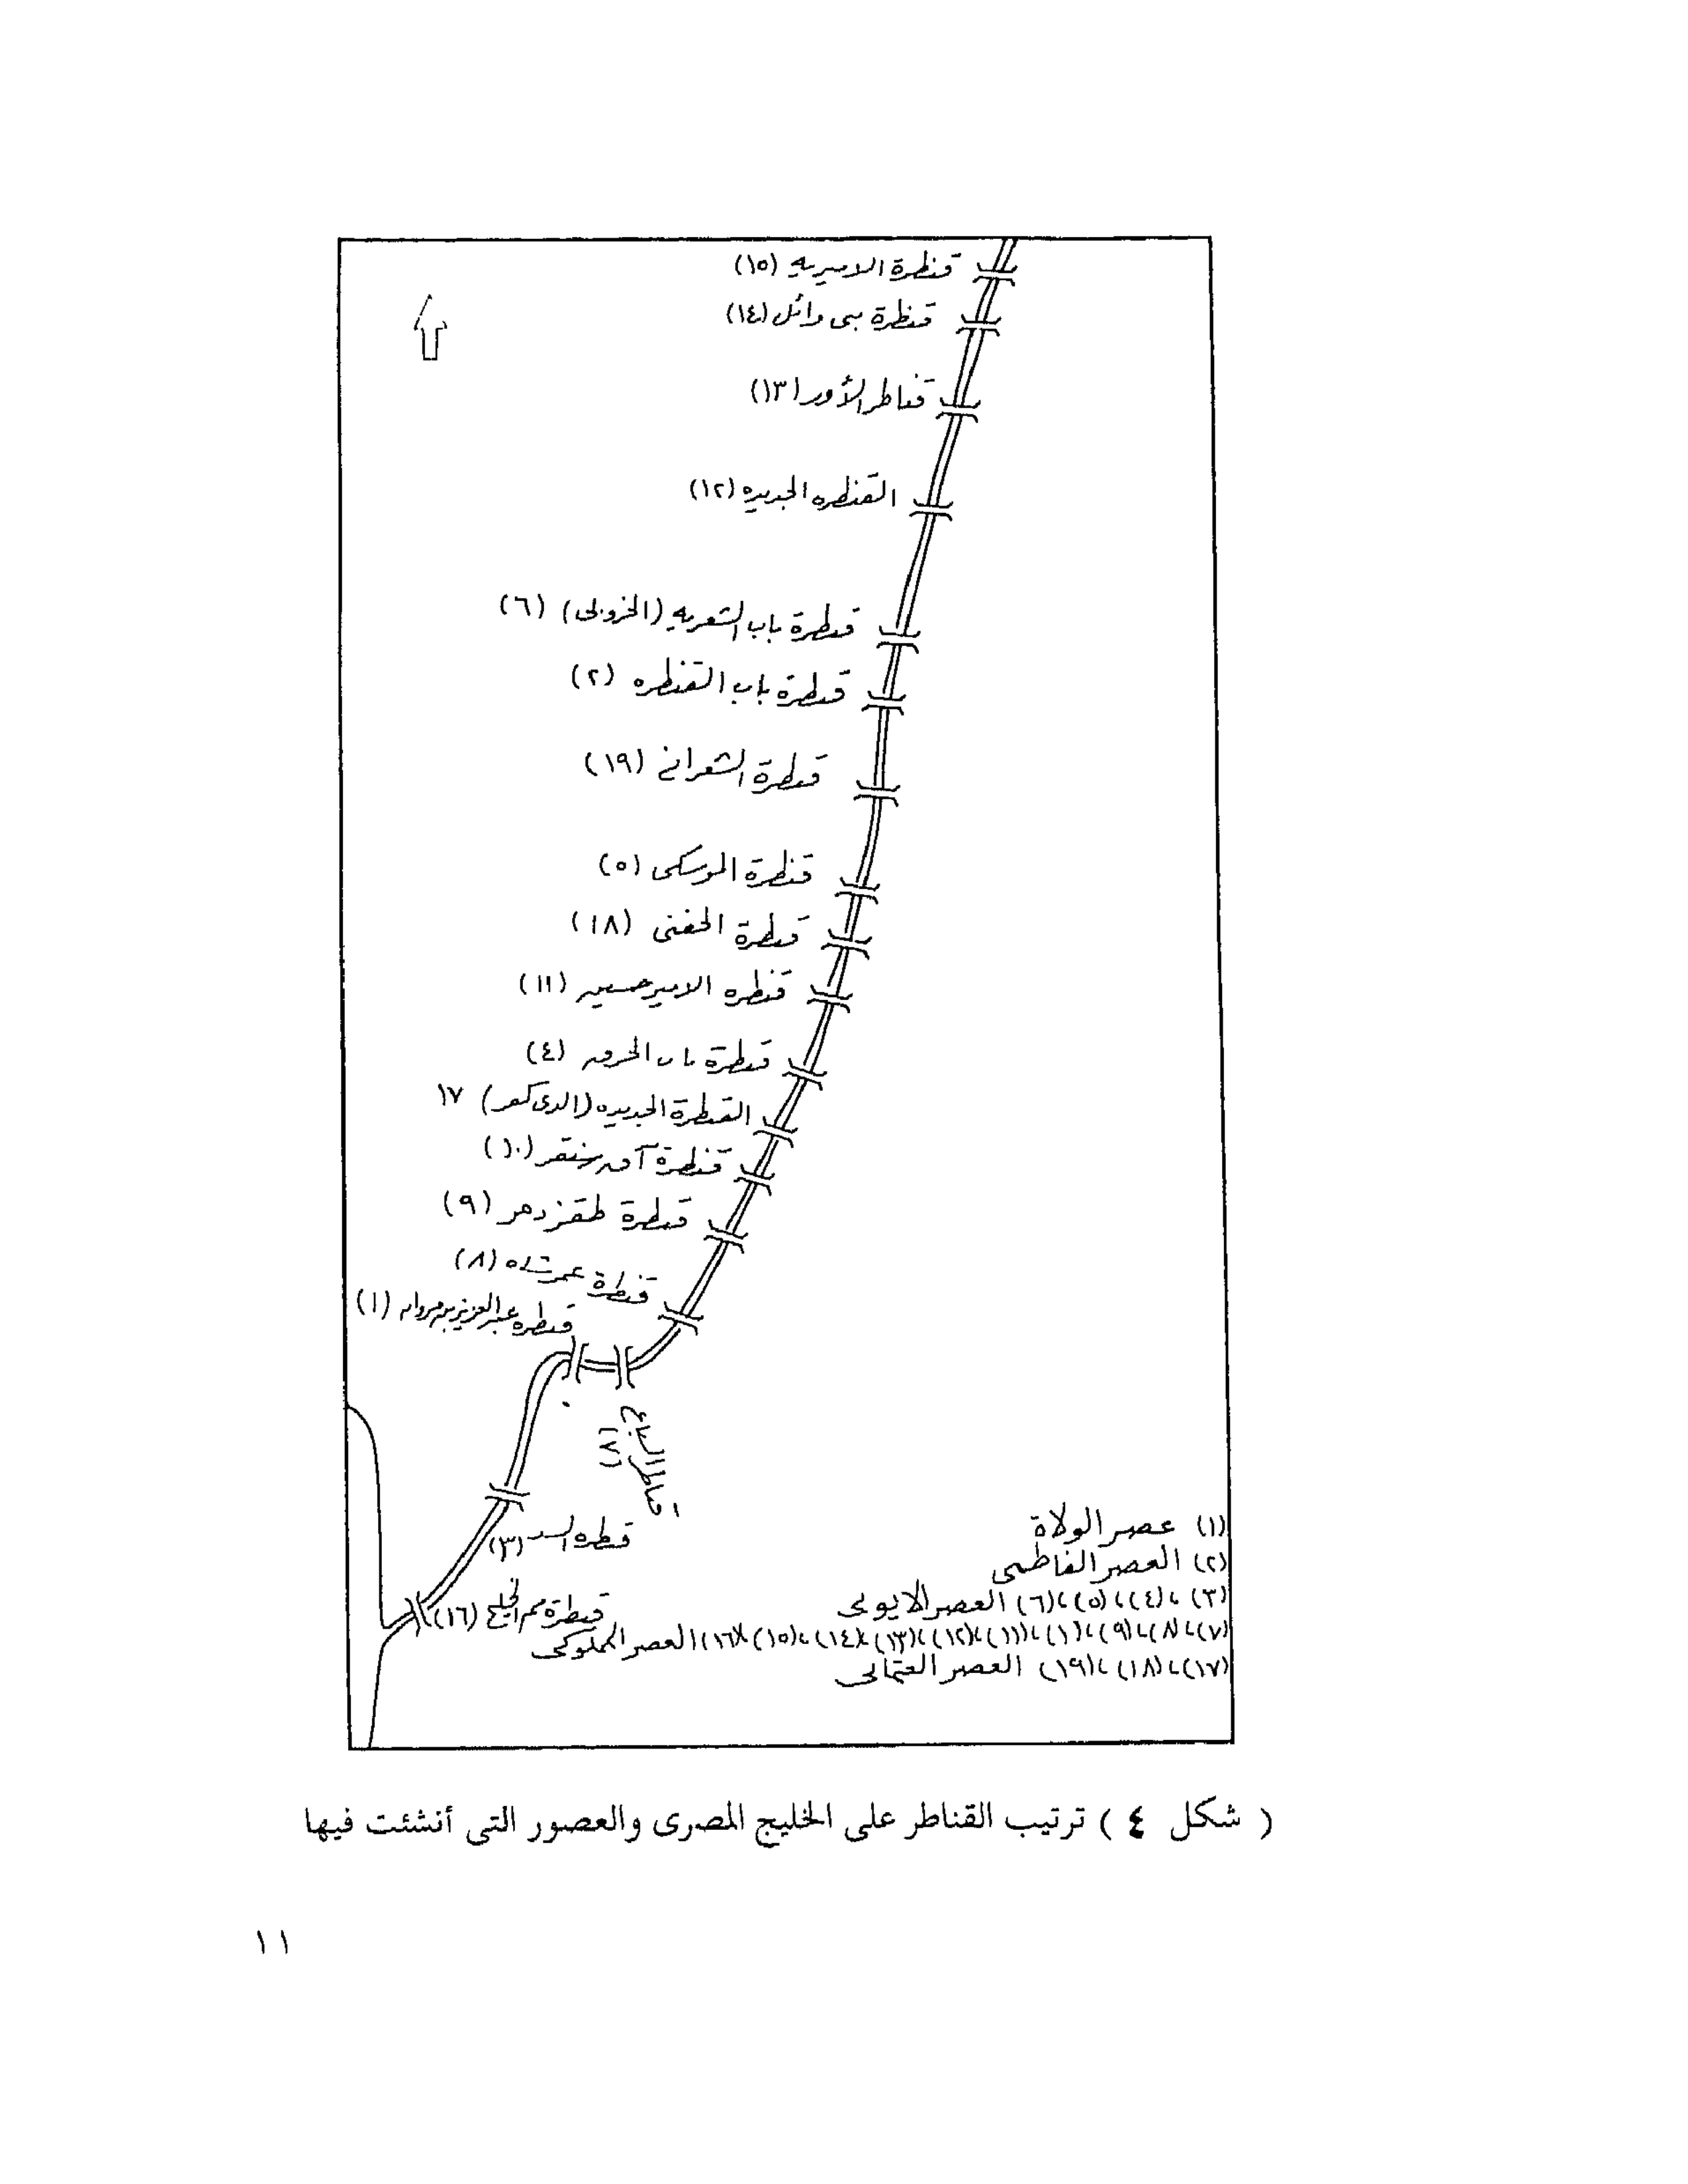 قنطرة الاميريه (١٥)
قنطرة بنى وائل (١٤)
قناطر الأوز (١٣)
القنطره الجديده (١٢)
قنطرة باب الشعريه (الخروبى) (٦)
قنطرة باب القنطره (٢)
قنطرة الشعرانى (١٩)
قنطرة الموسكى (٥)
قنطرة الحفنى (١٨)
قنطره الامير حسين (١١)
قنطرة باب الخرق (٤)
القنطرة الجديده ( كفر) ١٧
قنطرة آق سنقر (١٠)
قنطرة طقز دمر (٩)
قنطرة عمر شاه (٨)
قنطره عبد العزيز بن مروان (١)
قناطر السباع
(٧)
قنطره السد (٣)
قنطرة فم الخليج (١٦)
(١) عصر الولاة
(٢) العصر الفاطمى
(٣) ، (٤) ، (٥) ، (٦) العصر الايوبى
(٧) ، (٨) ، (٩) ، (١٠) ، (١١) ، (١٢) ، (١٣) ، (١٤) ، (١٥) ، (١٦) العصر المملوكى
(١٧) ، (١٨) ، (١٩) العصر العثمانى
( شكل ٤ ) ترتيب القناطر على الخليج المصرى والعصور التى أنشئت فيها
١١